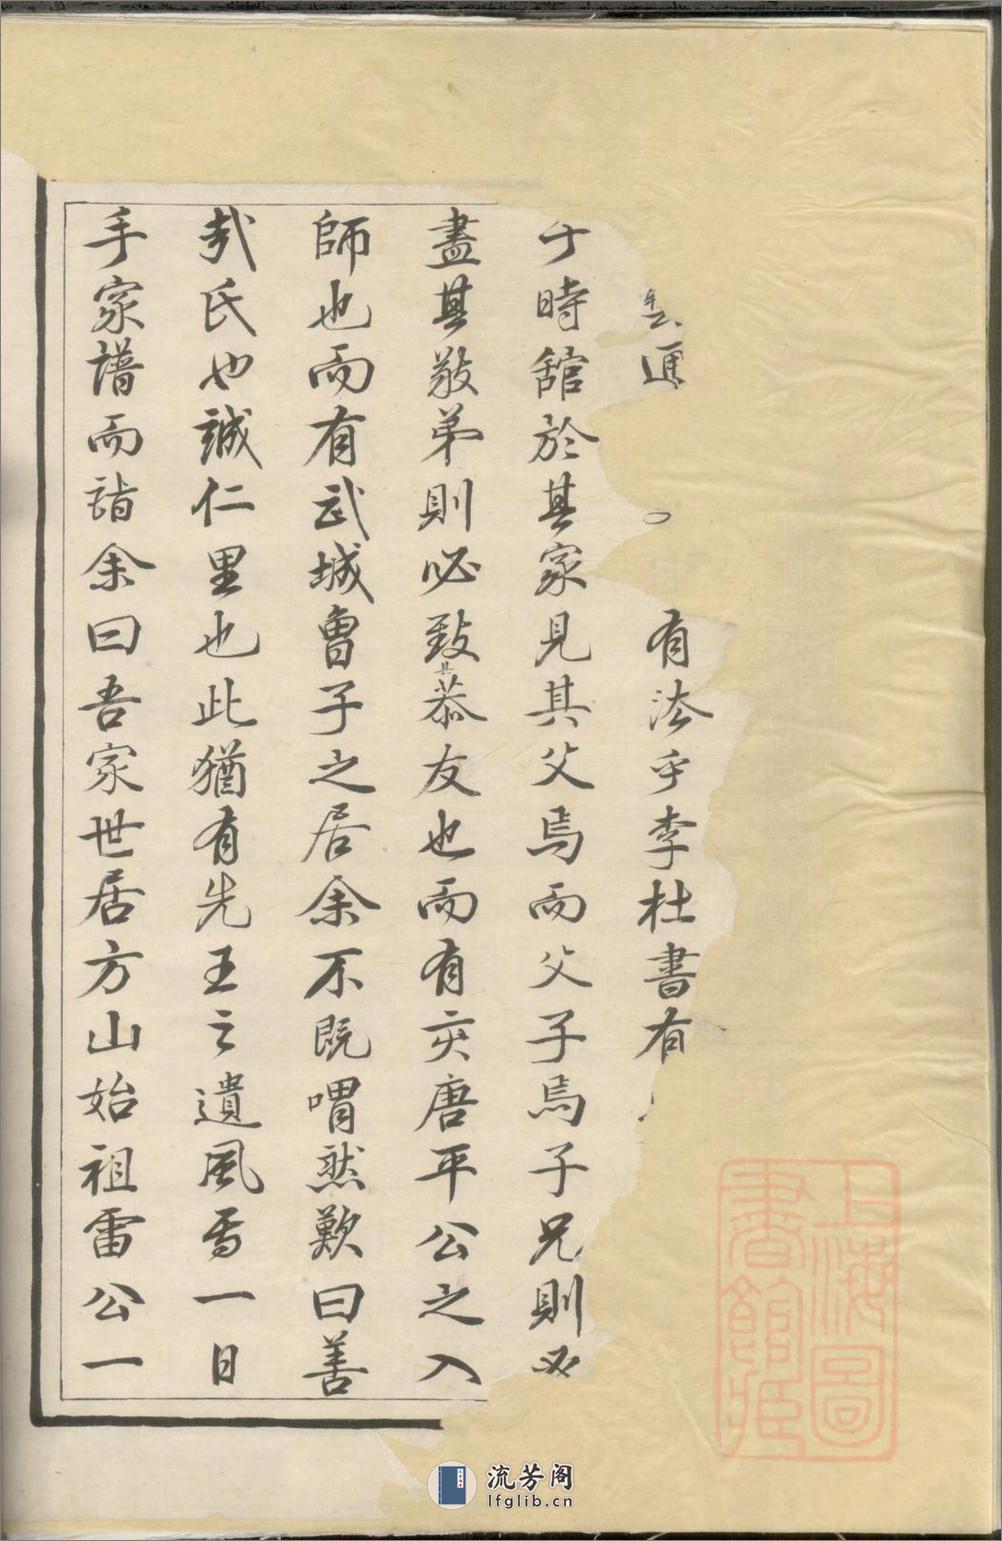 有法乎李杜書有
于時館於其家見其父焉而父子焉子兄則必
盡其敬弟則必致其恭友也而有亥唐平公之入
師也而有武城曾子之居余不既喟然歎曰善
哉氏也誠仁里也此猶有先王之遺風焉一日
手家譜而詣余曰吾家世居方山始祖雷公一
上海圖
書館藏
流芳阁
lfglib.cn